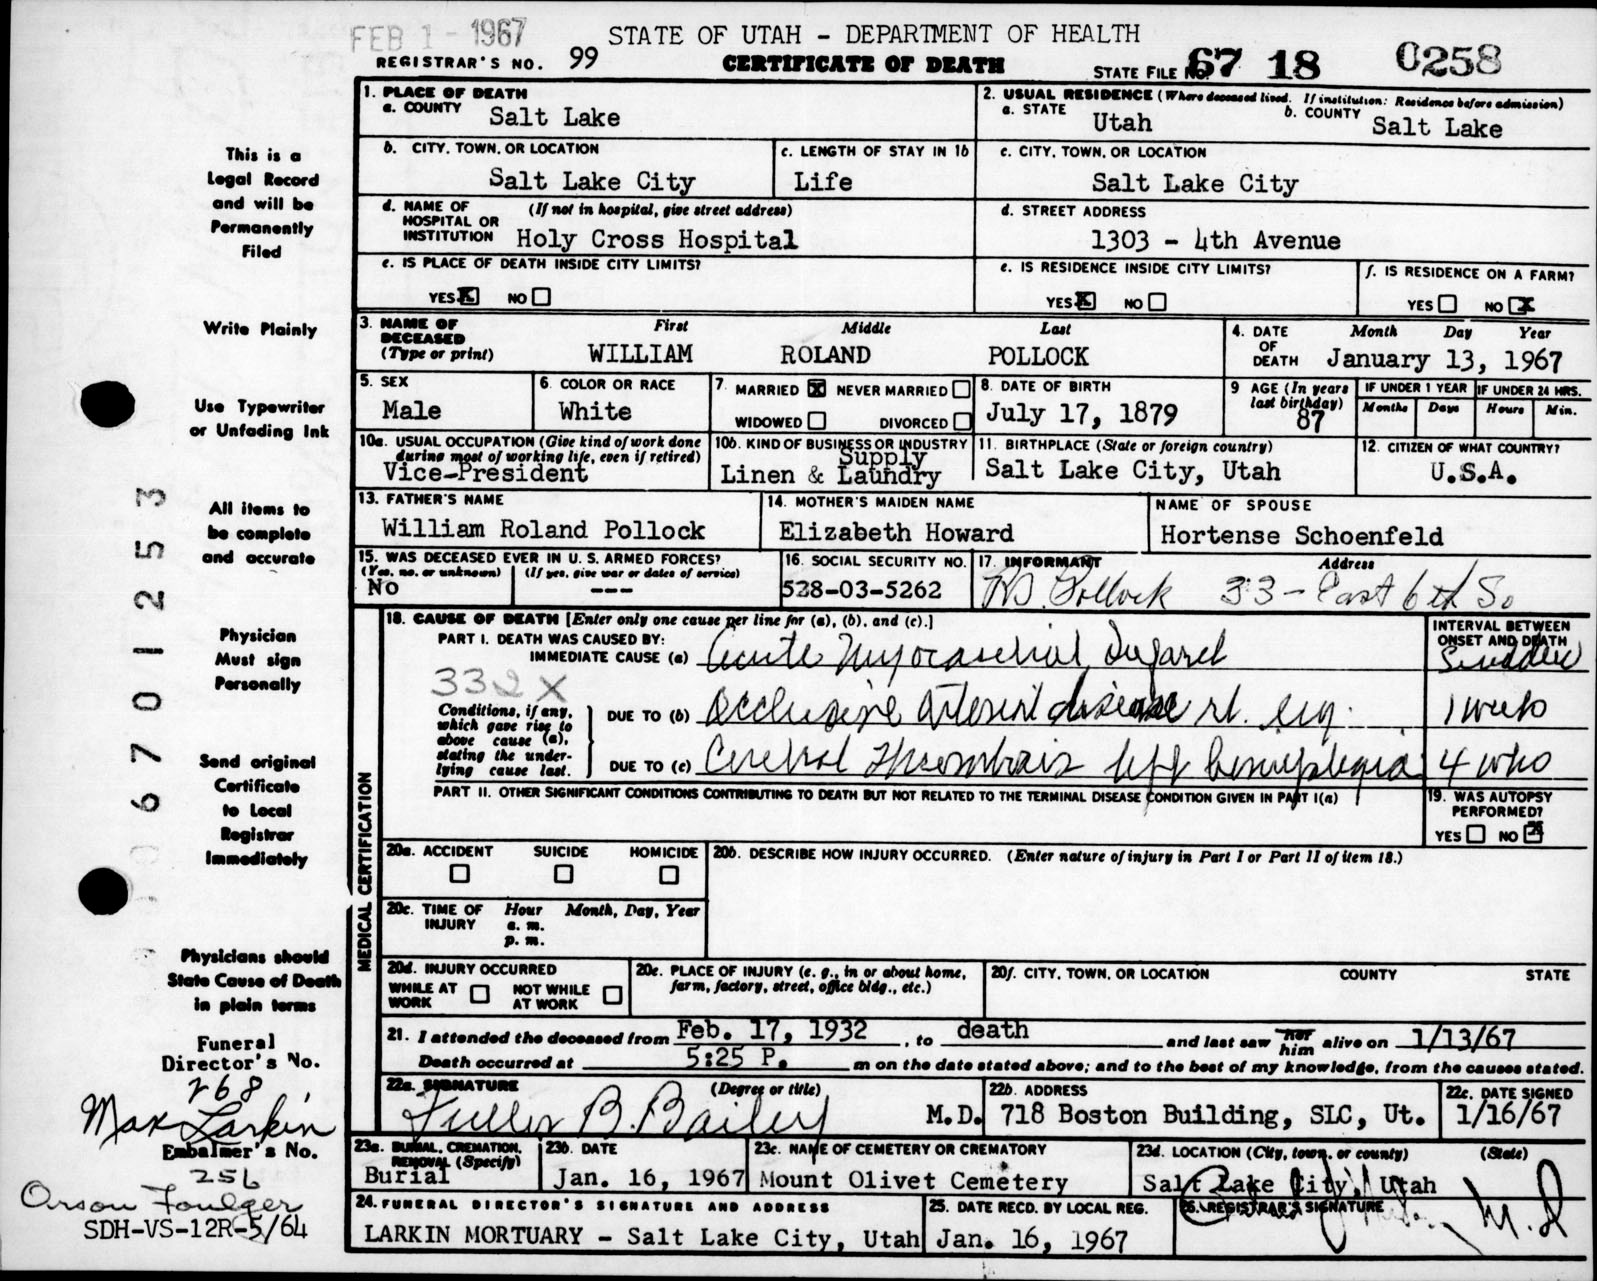 FEB 1 - 1967
STATE OF UTAH - DEPARTMENT OF HEALTH
REGISTRAR'S NO. 99
CERTIFICATE OF DEATH
STATE FILE NO. 67 18 0258
This is a
Legal Record
and will be
Permanently
Filed
Write Plainly
Use Typewriter
or Unfading Ink
All items to
be complete
and accurate
Physician
Must sign
Personally
Send original
Certificate
to Local
Registrar
Immediately
Physicians should
State Cause of Death
in plain terms
Funeral
Director's No.
268
Max Larkin
Embalmer's No.
256
Orson Foulger
SDH-VS-12R-5/64
6701253
1. PLACE OF DEATH
a. COUNTY Salt Lake
2. USUAL RESIDENCE (Where deceased lived. If institution: Residence before admission)
a. STATE Utah
b. COUNTY Salt Lake
b. CITY, TOWN, OR LOCATION
Salt Lake City
c. LENGTH OF STAY IN 1b
Life
c. CITY, TOWN, OR LOCATION
Salt Lake City
d. NAME OF HOSPITAL OR INSTITUTION (If not in hospital, give street address)
Holy Cross Hospital
d. STREET ADDRESS
1303 - 4th Avenue
e. IS PLACE OF DEATH INSIDE CITY LIMITS?
YES X NO
e. IS RESIDENCE INSIDE CITY LIMITS?
YES X NO
f. IS RESIDENCE ON A FARM?
YES NO X
3. NAME OF DECEASED (Type or print)
First Middle Last
WILLIAM ROLAND POLLOCK
4. DATE OF DEATH Month Day Year
January 13, 1967
5. SEX
Male
6. COLOR OR RACE
White
7. MARRIED X NEVER MARRIED
WIDOWED DIVORCED
8. DATE OF BIRTH
July 17, 1879
9 AGE (In years last birthday)
87
IF UNDER 1 YEAR
Months Days
IF UNDER 24 HRS.
Hours Min.
10a. USUAL OCCUPATION (Give kind of work done during most of working life, even if retired)
Vice-President
10b. KIND OF BUSINESS OR INDUSTRY
Supply
Linen & Laundry
11. BIRTHPLACE (State or foreign country)
Salt Lake City, Utah
12. CITIZEN OF WHAT COUNTRY?
U.S.A.
13. FATHER'S NAME
William Roland Pollock
14. MOTHER'S MAIDEN NAME
Elizabeth Howard
NAME OF SPOUSE
Hortense Schoenfeld
15. WAS DECEASED EVER IN U. S. ARMED FORCES?
(Yes, no, or unknown) (If yes, give war or dates of service)
No ---
16. SOCIAL SECURITY NO.
528-03-5262
17. INFORMANT Address
Pollock 33 - East 6th So
MEDICAL CERTIFICATION
18. CAUSE OF DEATH [Enter only one cause per line for (a), (b), and (c).]
INTERVAL BETWEEN ONSET AND DEATH
PART I. DEATH WAS CAUSED BY:
IMMEDIATE CAUSE (a) Acute Myocardial Infarct Sudden
332X
Conditions, if any, which gave rise to above cause (a), stating the underlying cause last.
DUE TO (b) Occlusive Arterial disease rt. leg. 1 week
DUE TO (c) Cerebral Thrombosis left hemiplegia 4 wks
PART II. OTHER SIGNIFICANT CONDITIONS CONTRIBUTING TO DEATH BUT NOT RELATED TO THE TERMINAL DISEASE CONDITION GIVEN IN PART I(a)
19. WAS AUTOPSY PERFORMED?
YES NO X
20a. ACCIDENT SUICIDE HOMICIDE
20b. DESCRIBE HOW INJURY OCCURRED. (Enter nature of injury in Part I or Part II of item 18.)
20c. TIME OF INJURY Hour Month, Day, Year
a. m.
p. m.
20d. INJURY OCCURRED
WHILE AT WORK NOT WHILE AT WORK
20e. PLACE OF INJURY (e. g., in or about home, farm, factory, street, office bldg., etc.)
20f. CITY, TOWN, OR LOCATION COUNTY STATE
21. I attended the deceased from Feb. 17, 1932, to death and last saw her him alive on 1/13/67
Death occurred at 5:25 P. m on the date stated above; and to the best of my knowledge, from the causes stated.
22a. SIGNATURE (Degree or title)
Fuller B. Bailey M.D.
22b. ADDRESS
718 Boston Building, SLC, Ut.
22c. DATE SIGNED
1/16/67
23a. BURIAL, CREMATION, REMOVAL (Specify)
Burial
23b. DATE
Jan. 16, 1967
23c. NAME OF CEMETERY OR CREMATORY
Mount Olivet Cemetery
23d. LOCATION (City, town, or county) (State)
Salt Lake City, Utah
24. FUNERAL DIRECTOR'S SIGNATURE AND ADDRESS
LARKIN MORTUARY - Salt Lake City, Utah
25. DATE RECD. BY LOCAL REG.
Jan. 16, 1967
26. REGISTRAR'S SIGNATURE
M.D